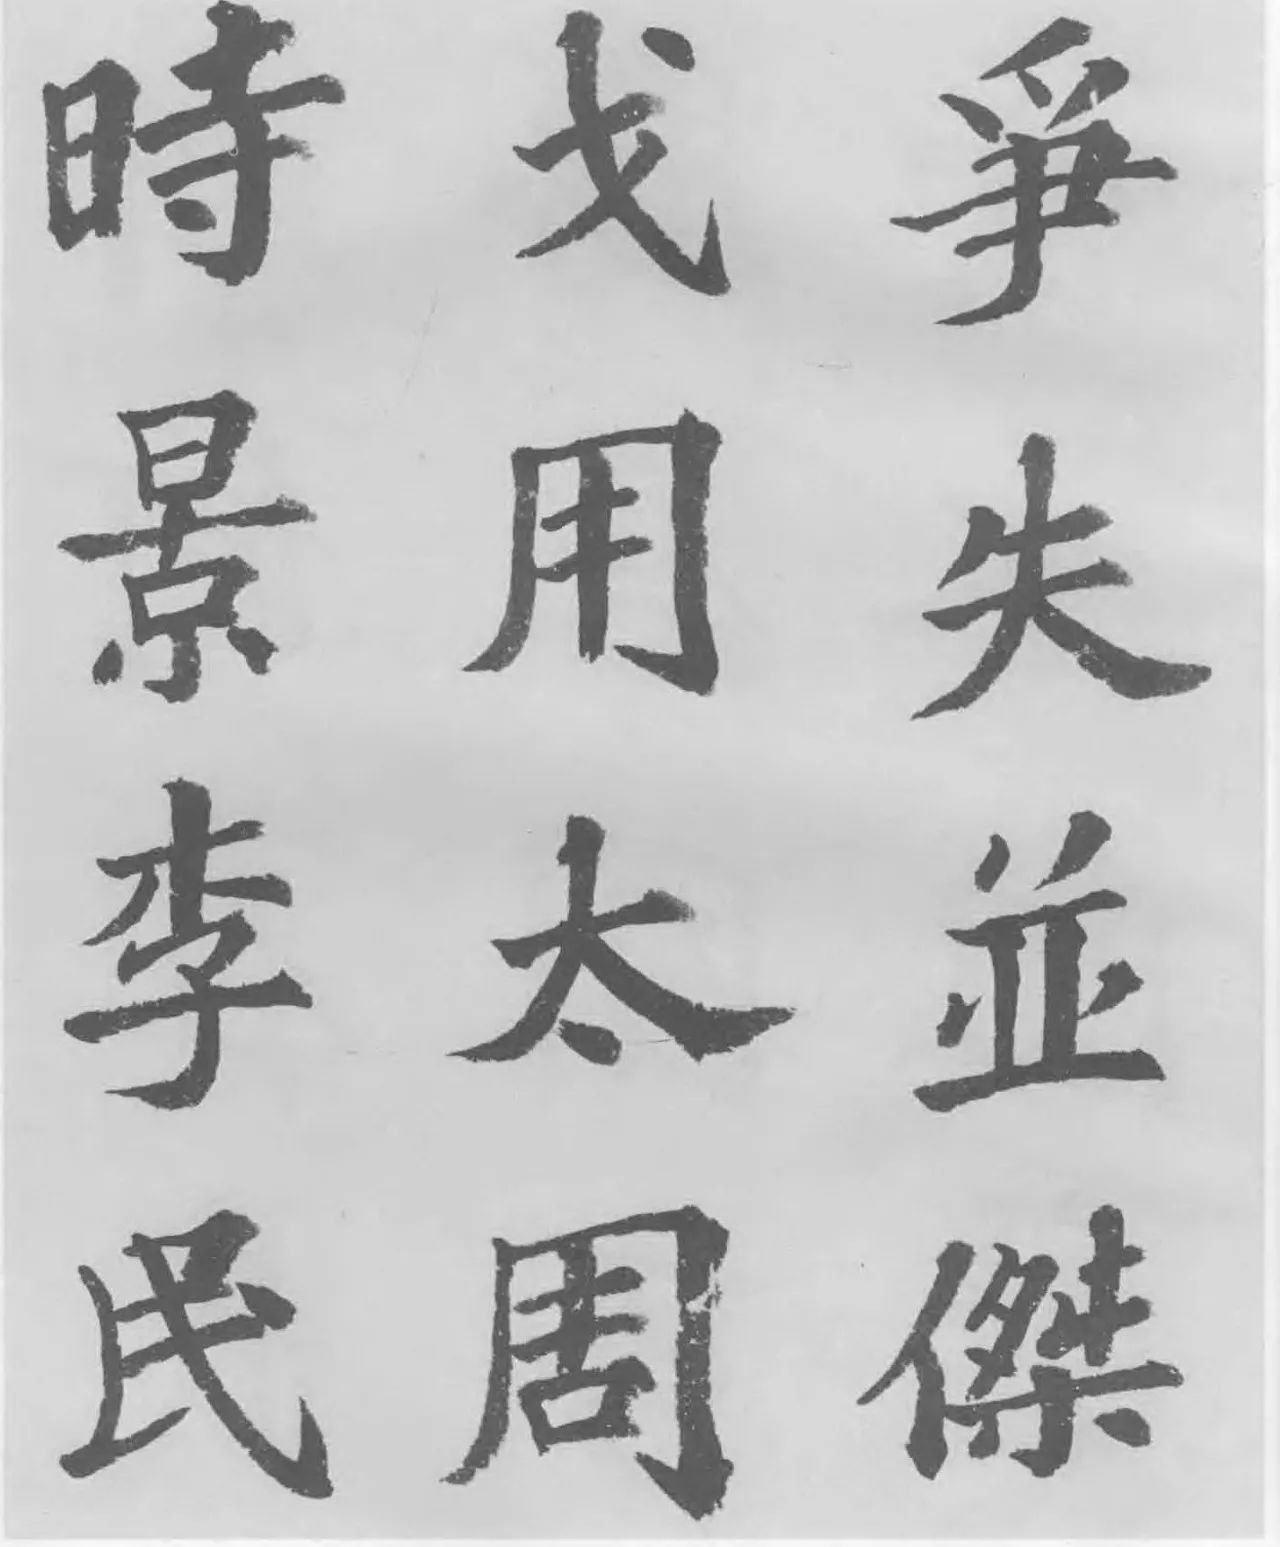 爭失並傑
戈用太周
時景李民